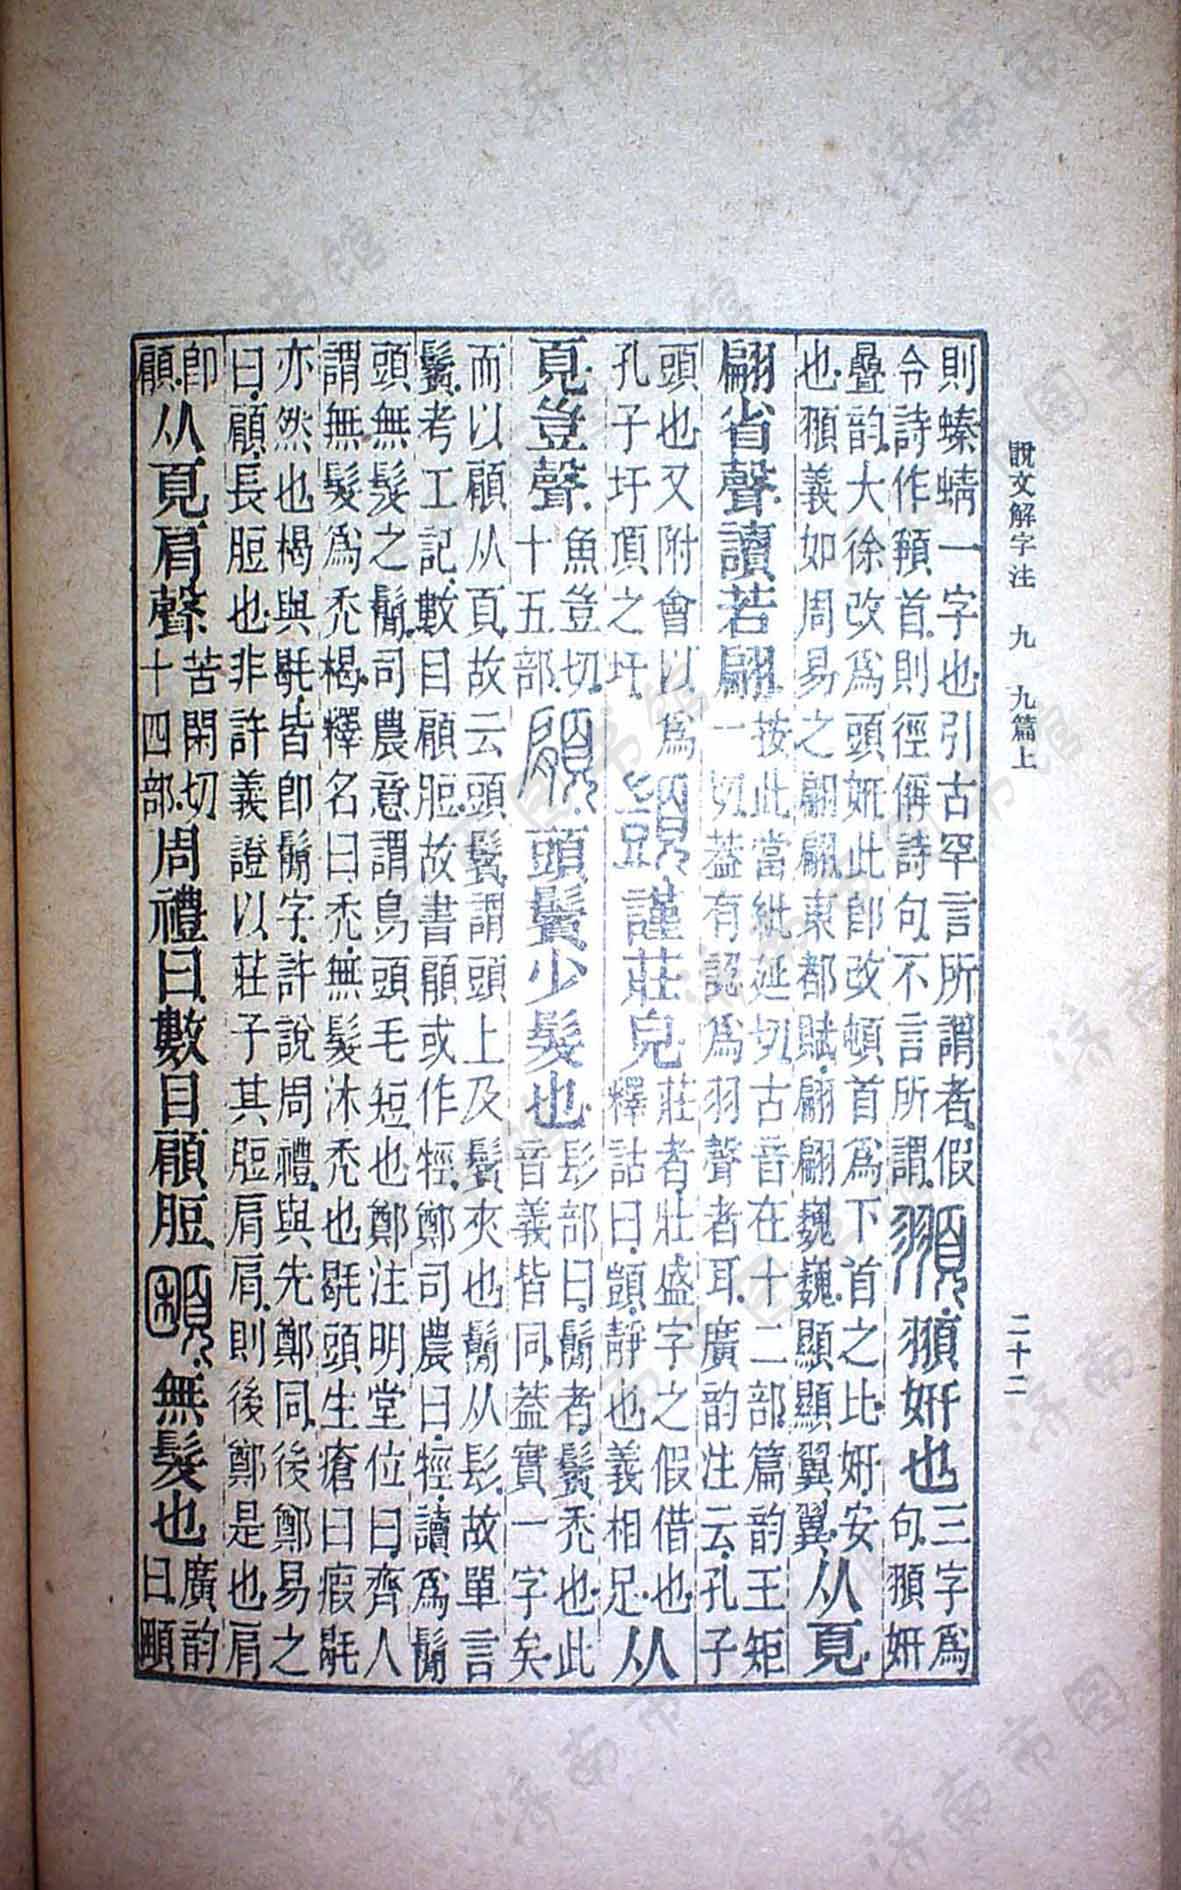 說文解字注 九 九篇上
二十二
則螓蜻一字也引古罕言所謂者假
令詩作頛首則徑偁詩句不言所謂
𩑺 𩑺妍也
三字為
句𩑺妍
疊韵大徐改為頭妍此卽改頓首為下首之比妍安
也𩑺義如周易之翩翩東都賦翩翩巍巍顯顯翼翼
从頁
翩省聲讀若翩
按此當紕延切古音在十二部篇韵王矩
一切葢有認為羽聲者耳廣韵注云孔子
頭也又附會以為
孔子圩頂之圩
顗 謹莊皃
莊者壯盛字之假借也
釋詁曰顗靜也義相足
从
頁豈聲
魚豈切
十五部
顅 頭鬢少髮也
髟部曰鬜者鬢禿也此
音義皆同葢實一字矣
而以顅从頁故云頭鬢謂頭上及鬢夾也鬜从髟故單言
鬢考工記數目顅脰故書顅或作牼鄭司農曰牼讀為鬜
頭無髮之鬜司農意謂鳥頭毛短也鄭注明堂位曰齊人
謂無髮為禿楬釋名曰禿無髮沐禿也毼頭生瘡曰瘕毼
亦然也楬與毼皆卽鬜字許說周禮與先鄭同後鄭易之
曰顅長脰也非許義證以莊子其脰肩肩則後鄭是也肩
卽
顅
从頁肩聲
苦閑切
十四部
周禮曰數目顅脰
無髮也
廣韵
曰